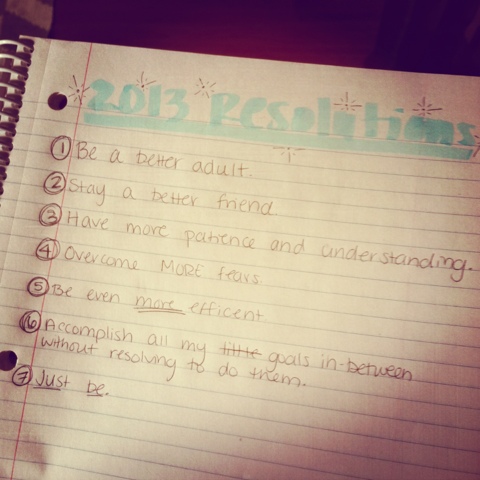 2013 Resolutions
① Be a better adult.
② Stay a better friend.
③ Have more patience and understanding.
④ Overcome MORE fears.
⑤ Be even more efficent
⑥ Accomplish all my little goals in-between
without resolving to do them.
⑦ Just be.